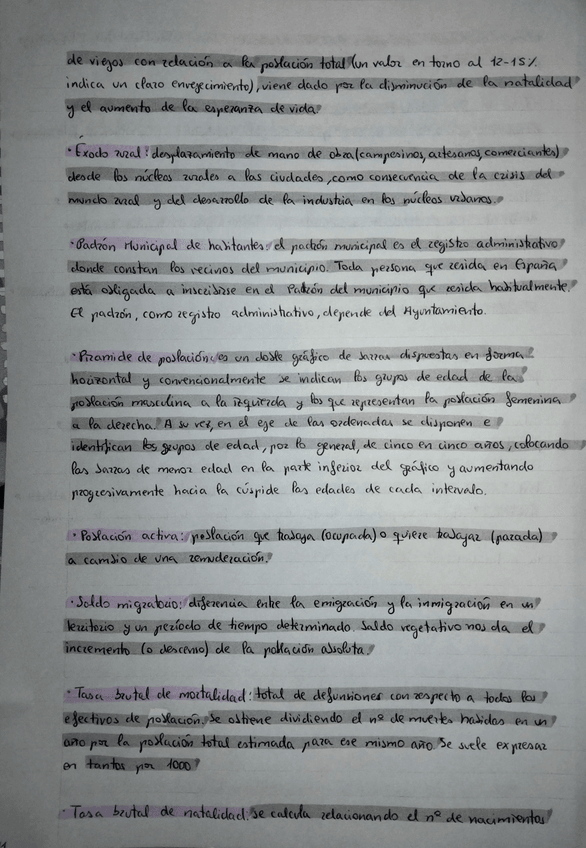 de viejos con relación a la población total (un valor en torno al 12-15%
indica un claro envejecimiento), viene dado por la disminución de la natalidad
y el aumento de la esperanza de vida.
· Éxodo rural: desplazamiento de mano de obra (campesinos, artesanos, comerciantes)
desde los núcleos rurales a las ciudades, como consecuencia de la crisis del
mundo rural y del desarrollo de la industria en los núcleos urbanos.
· Padrón Municipal de habitantes: el padrón municipal es el registro administrativo
donde constan los vecinos del municipio. Toda persona que resida en España
está obligada a inscribirse en el Padrón del municipio que resida habitualmente.
El padrón, como registro administrativo, depende del Ayuntamiento.
· Piramide de población: es un doble gráfico de barras dispuestas en forma
horizontal y convencionalmente se indican los grupos de edad de la
población masculina a la izquierda y los que representan la población femenina
a la derecha. A su vez, en el eje de las ordenadas se disponen e
identifican los grupos de edad, por lo general, de cinco en cinco años, colocando
las barras de menor edad en la parte inferior del gráfico y aumentando
progresivamente hacia la cúspide las edades de cada intervalo.
· Población activa: población que trabaja (ocupada) o quiere trabajar (parada)
a cambio de una remuderación.
· Saldo migratorio: diferencia entre la emigración y la inmigración en un
territorio y un período de tiempo determinado. Saldo vegetativo nos da el
incremento (o descenso) de la población absoluta.
· Tasa brutal de mortalidad: total de defunsiones con respecto a todos los
efectivos de población. Se obtiene dividiendo el nº de muertes habidas en un
año por la población total estimada para ese mismo año. Se suele expresar
en tantos por 1000
· Tasa brutal de natalidad: se calcula relacionando el nº de nacimientos